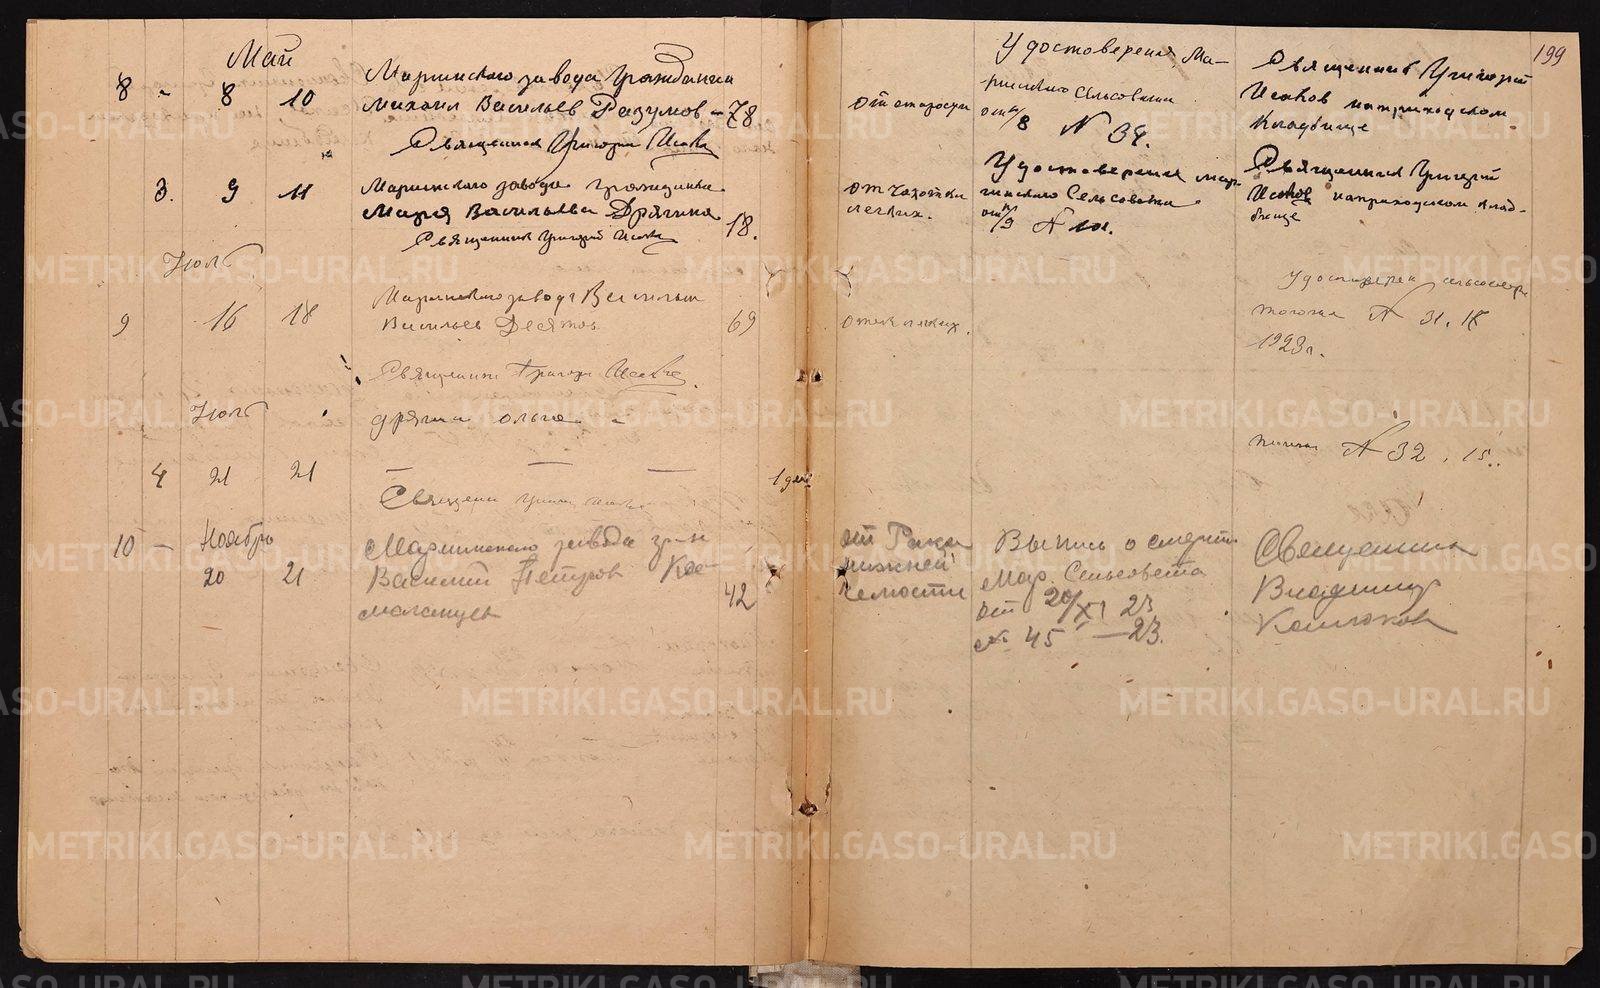 199
Май
8 - 8 10
Мариинскаго завода Гражданин
Михаил Васильев Разумов - 78
Священник Григорий Исаков
От старости
Удостоверения Ма-
риинскаго Сельсовета
от 8 N 34.
Священник Григорий
Исаков на приходском
Кладбище
3. 9 11
Мариинскаго завода гражданка
Мария Васильева Дрягина
18.
Священник Григорий Исаков
от чахотки
легких.
Удостоверения Мари-
инскаго Сельсовета
от /9 N
Священник Григорий
Исаков на приходском клад-
бище
Июль
9 16 18
Мариинскаго завода Василий
Васильев Десятов
69
Священник Григорий Исаков
Удостоверен сельсовета
N 31.
1923 г.
Июль
Ольга
4 21 21
1 день
Священ
N 32. 15.
10 - Ноябрь
20 21
Мариинского завода гр-н
Василий Петров
42
от Рака
нижней
челюсти
Выпись о смерти
Мар. Сельсовета
от 20/XI 23
№ 45 - 23.
Священник
Владимир
METRIKI.GASO-URAL.RU